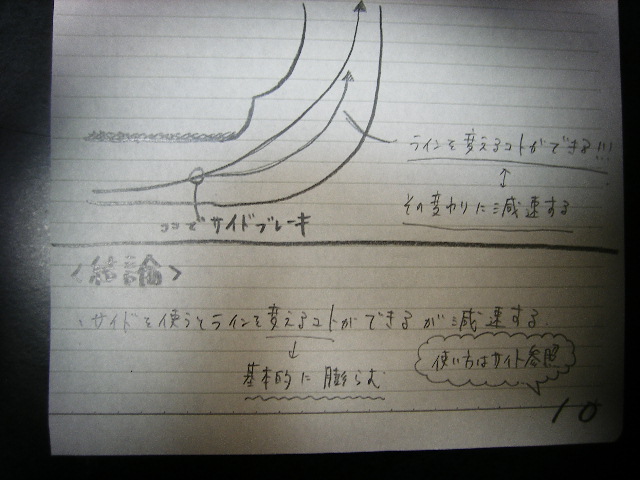 ラインを変えるコトができる!!!
↕
その変わりに減速する
ココでサイドブレーキ
<結論>
・サイドを使うとラインを変えるコトができるが減速する
↓
基本的に膨らむ
使い方はサイト参照
10